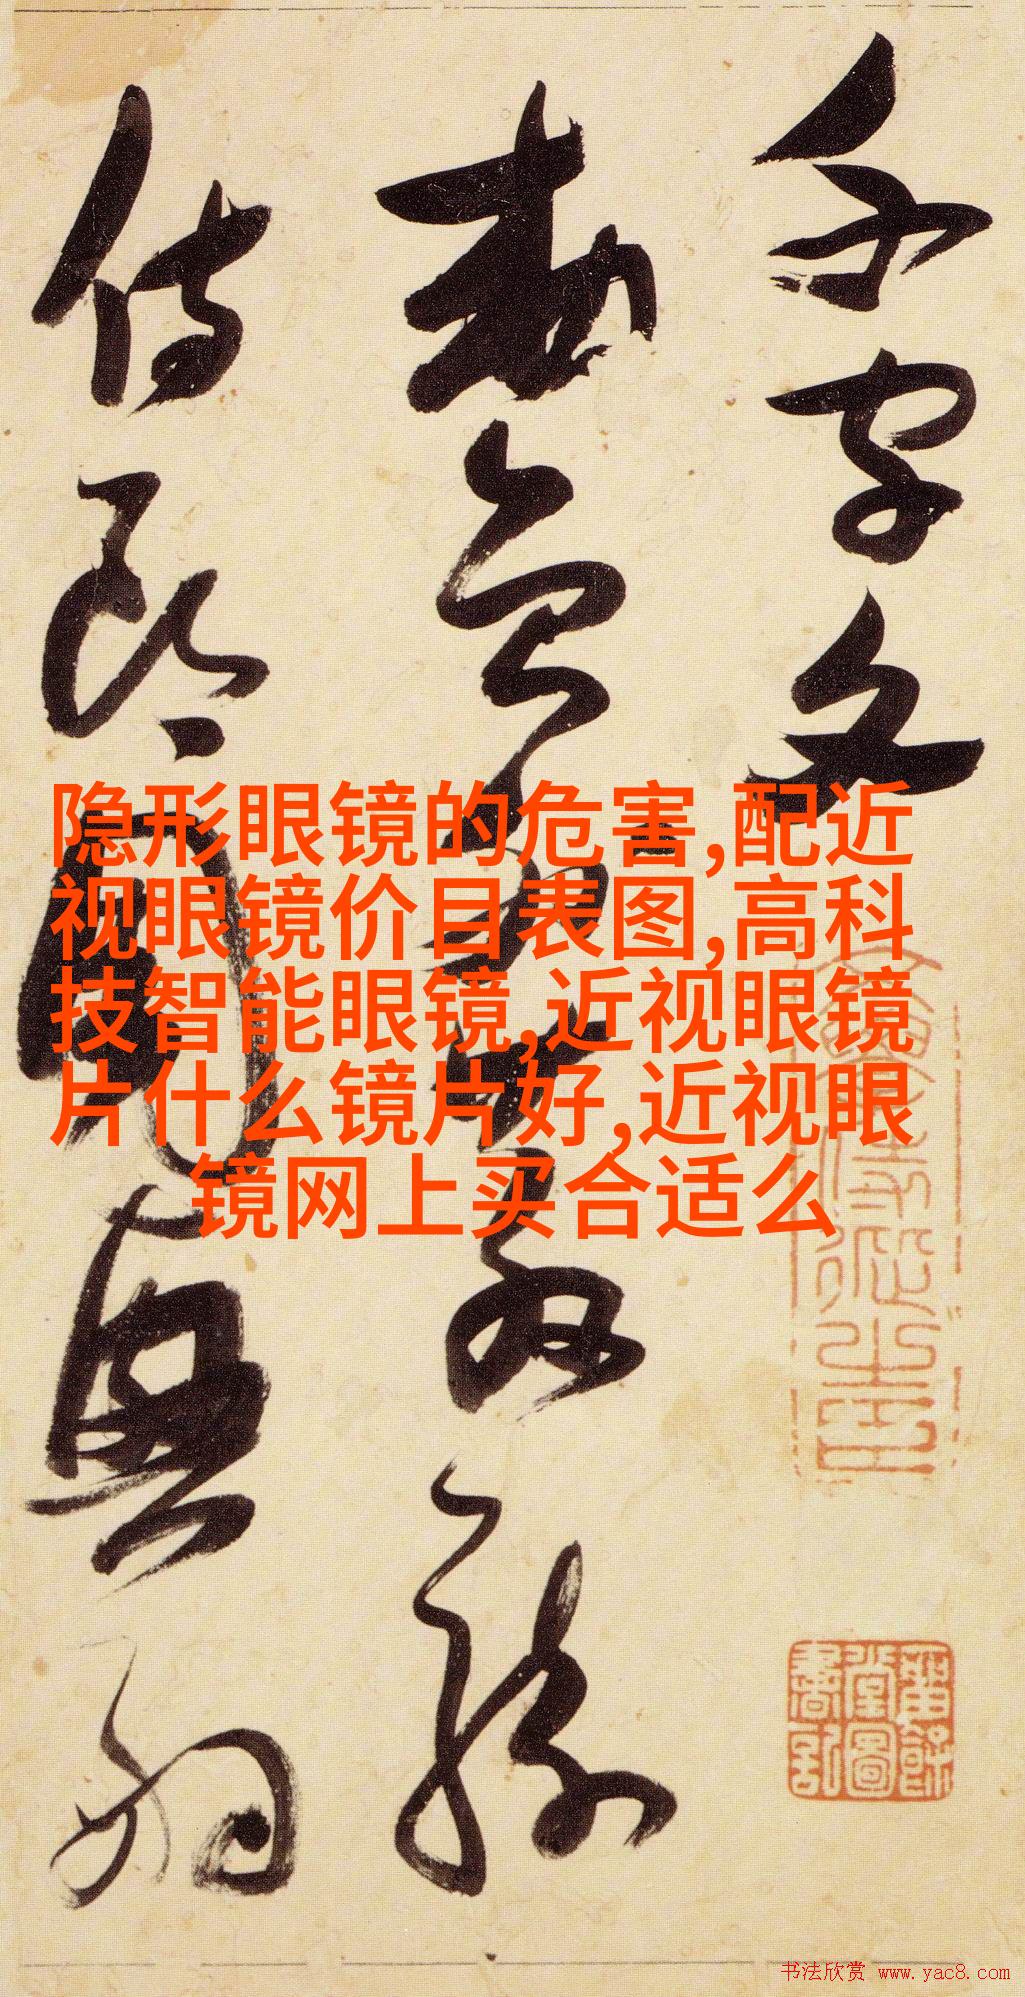 千字文
勅員
侍郎周興嗣
隐形眼镜的危害,配近
视眼镜价目表图,高科
技智能眼镜,近视眼镜
片什么镜片好,近视眼
镜网上买合适么
书法欣赏 www.yac8.com